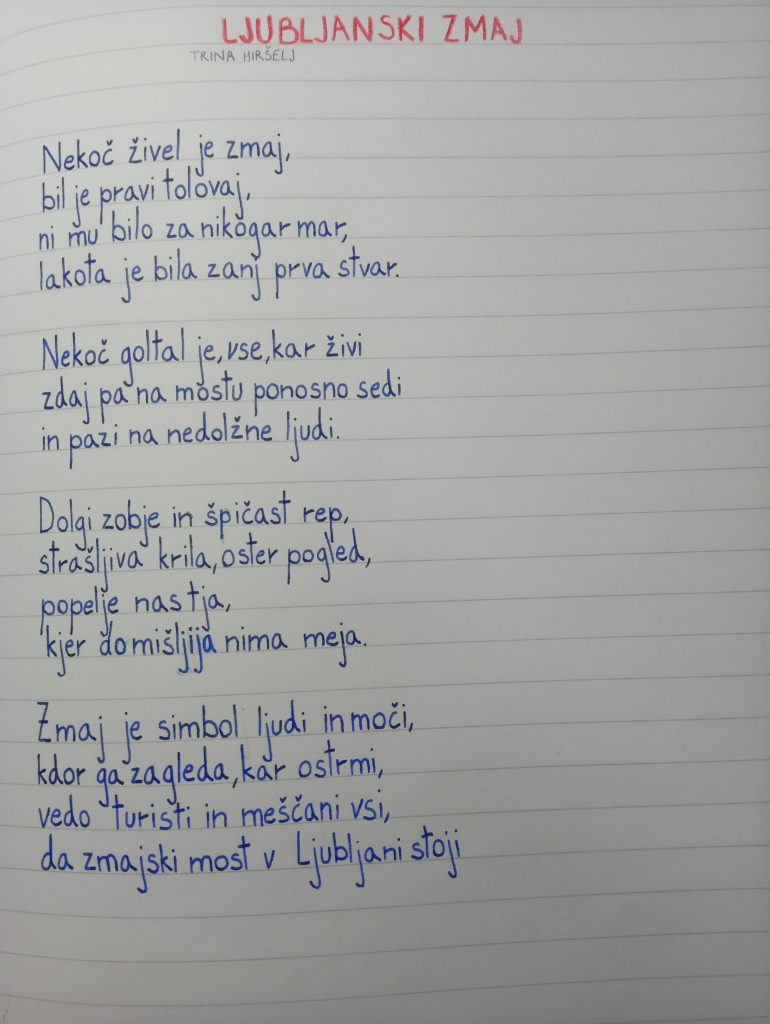 LJUBLJANSKI ZMAJ
TRINA HIRŠELJ
Nekoč živel je zmaj,
bil je pravi tolovaj,
ni mu bilo za nikogar mar,
lakota je bila zanj prva stvar.
Nekoč goltal je, vse, kar živi
zdaj pa na mostu ponosno sedi
in pazi na nedolžne ljudi.
Dolgi zobje in špičast rep,
strašljiva krila, oster pogled,
popelje nas tja,
kjer domišljija nima meja.
Zmaj je simbol ljudi in moči,
kdor ga zagleda, kar ostrmi,
vedo turisti in meščani vsi,
da zmajski most v Ljubljani stoji